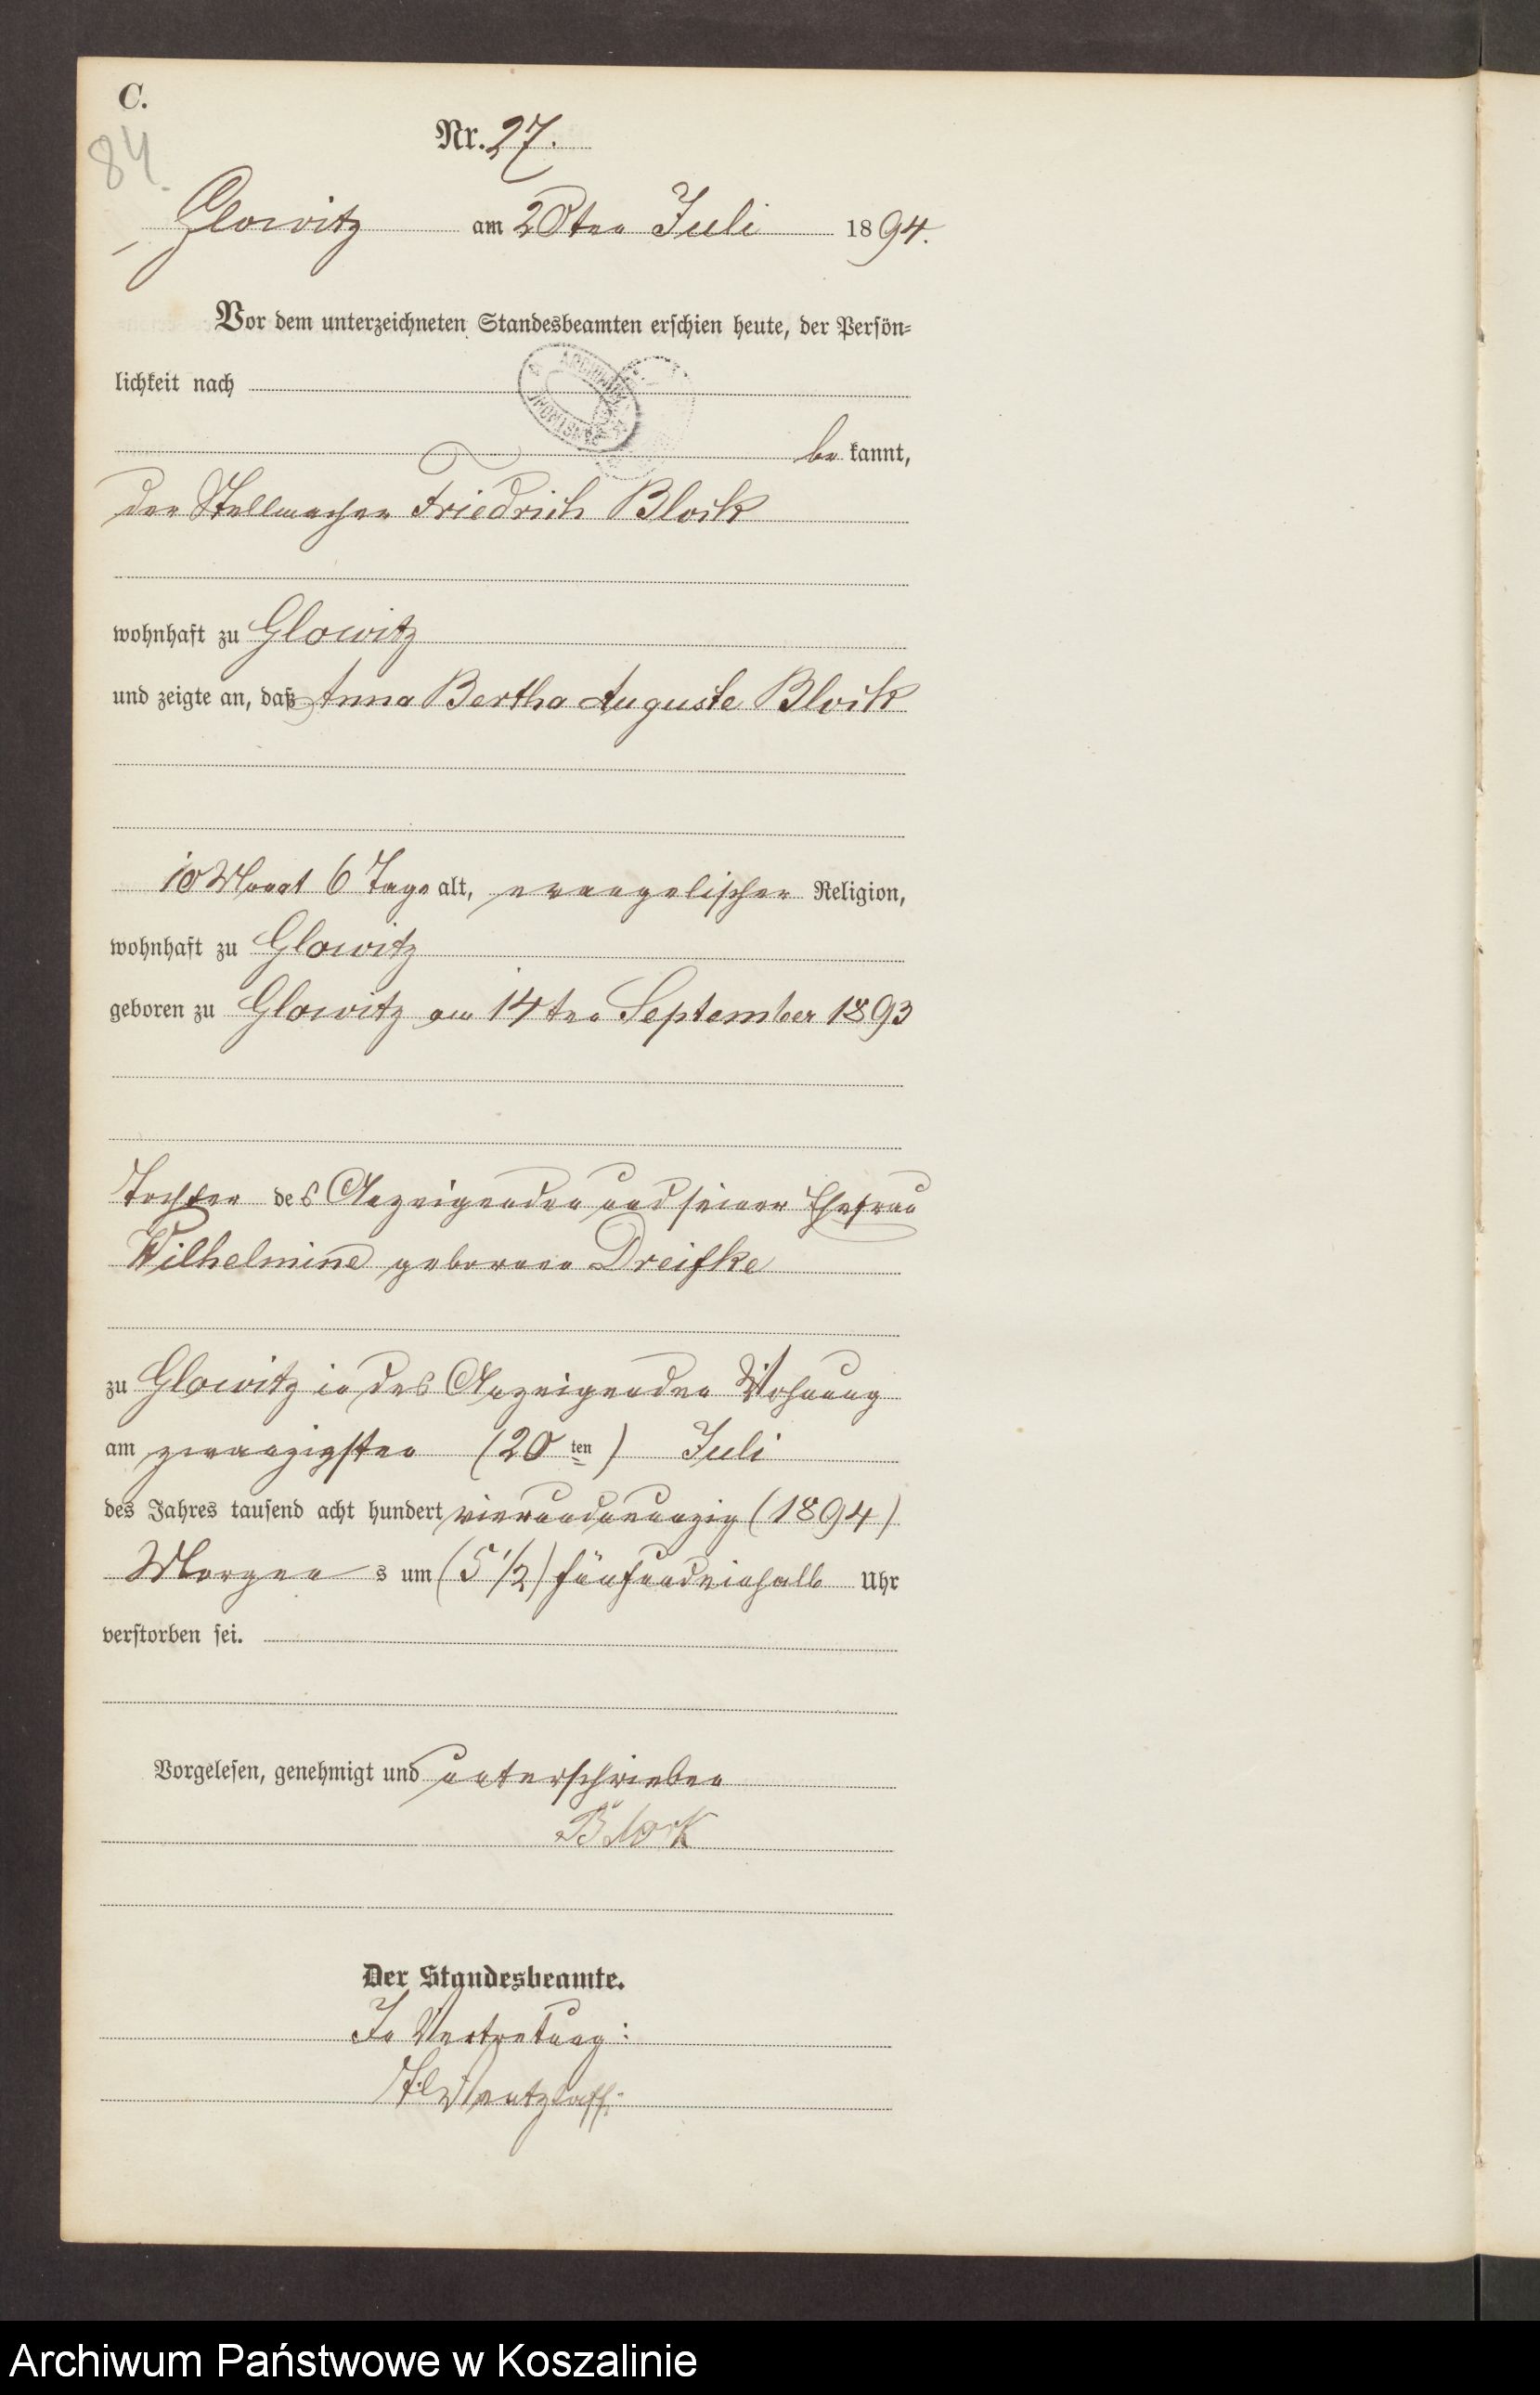 C.
84.
Nr. 27.
Glowitz am 20ten Juli 1894.
Vor dem unterzeichneten Standesbeamten erschien heute, der Persön-
lichkeit nach
ARCHIWUM
be kannt,
der Stellmacher Friedrich Block
wohnhaft zu Glowitz
und zeigte an, daß Anna Bertha Auguste Block
10 Monat 6 Tage alt, evangelischer Religion,
wohnhaft zu Glowitz
geboren zu Glowitz am 14ten September 1893
Tochter des Anzeigenden und seiner Ehefrau
Wilhelmine geborenen Dreifke
zu Glowitz in des Anzeigenden Wohnung
am zwanzigsten (20ten) Juli
des Jahres tausend acht hundert vierundneunzig (1894)
Morgens um (5 1/2) fünfundeinhalb Uhr
verstorben sei.
Vorgelesen, genehmigt und unterschrieben
Block
Der Standesbeamte.
In Vertretung:
Archiwum Państwowe w Koszalinie